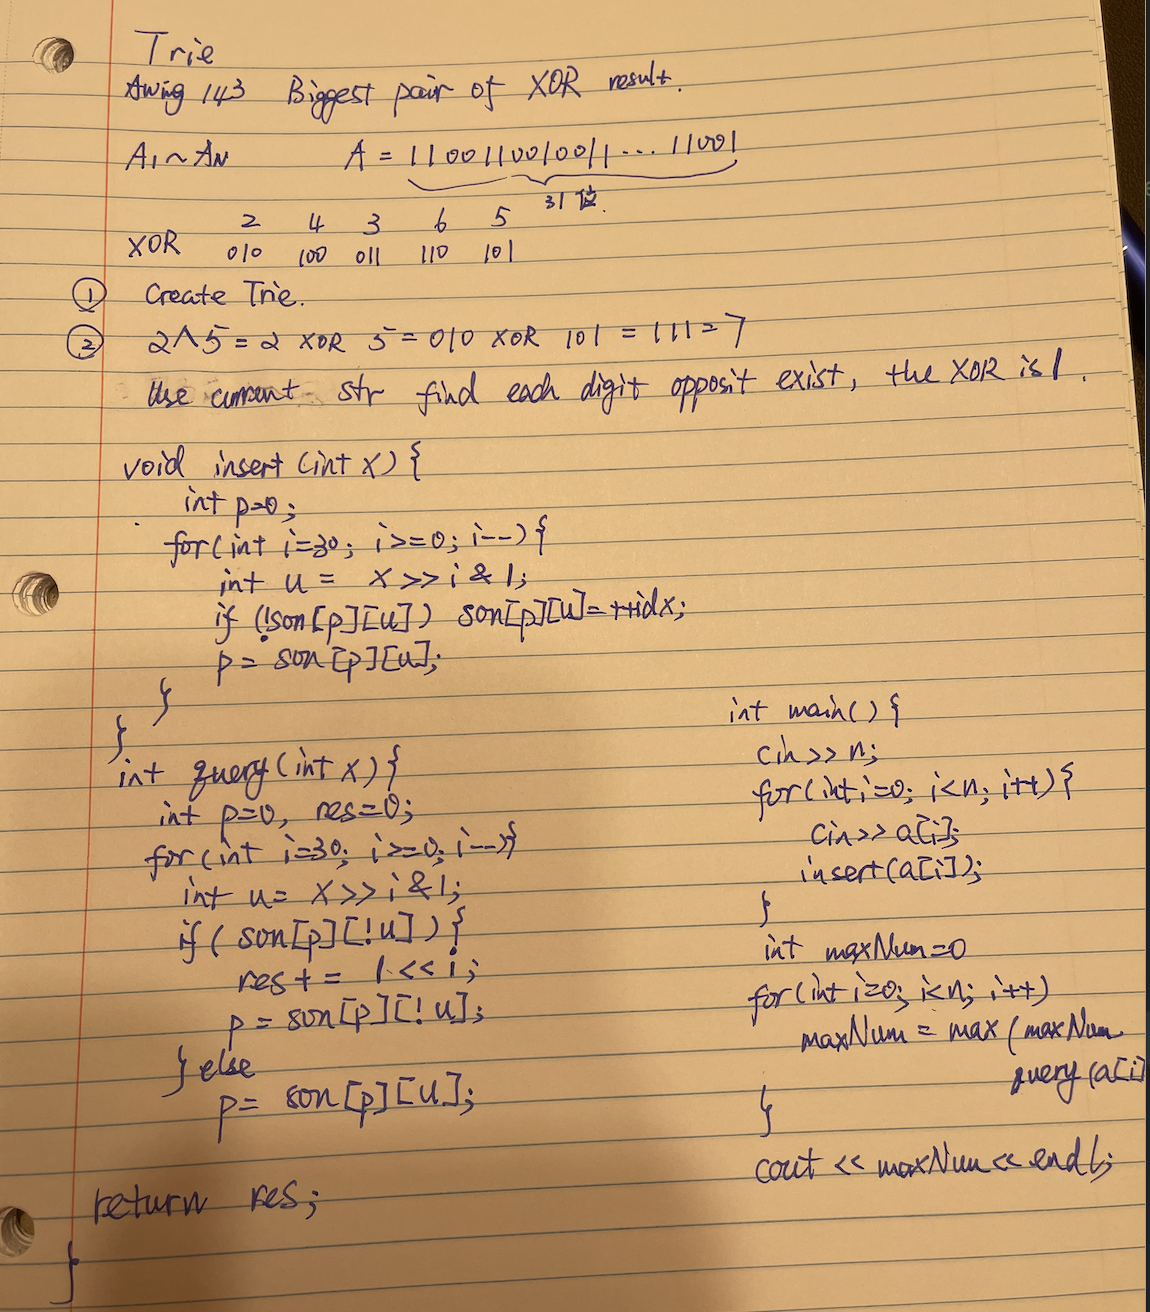 Trie
Awing 143 Biggest pair of XOR result.
A1 ~ AN A = 1100110010011... 11001
31 位.
2 4 3 6 5
XOR 010 100 011 110 101
① Create Trie.
② 2^5 = 2 XOR 5 = 010 XOR 101 = 111 = 7
Use current str find each digit opposit exist, the XOR is 1.
void insert (int x) {
int p=0;
for(int i=30; i>=0; i--){
int u = x>>i & 1;
if (!son[p][u]) son[p][u]=++idx;
p = son[p][u];
}
}
int query(int x){
int p=0, res=0;
for(int i=30; i>=0; i--){
int u= x>>i&1;
if( son[p][!u] ){
res += 1<<i;
p = son[p][!u];
} else
p = son[p][u];
return res;
}
int main() {
cin>>n;
for(int i=0; i<n; i++){
cin>>a[i];
insert(a[i]);
}
int maxNum=0
for(int i=0; i<n; i++)
maxNum = max (maxNum
query(a[i]
}
cout << maxNum << endl;